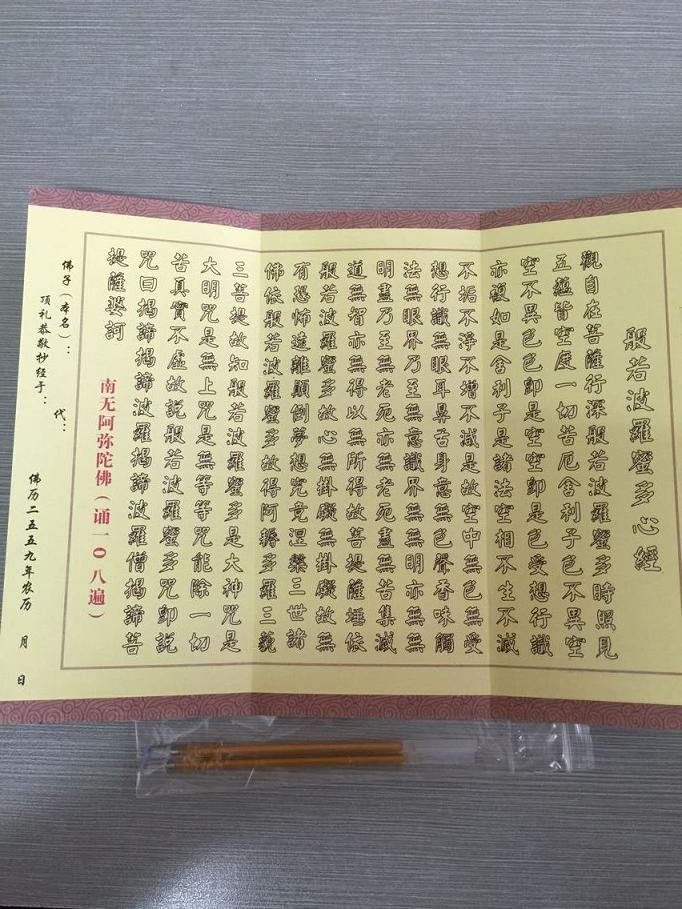 般若波羅蜜多心經
觀自在菩薩行深般若波羅蜜多時照見
五蘊皆空度一切苦厄舍利子色不異空
空不異色色卽是空空卽是色受想行識
亦復如是舍利子是諸法空相不生不滅
不垢不淨不增不減是故空中無色無受
想行識無眼耳鼻舌身意無色聲香味觸
法無眼界乃至無意識界無無明亦無無
明盡乃至無老死亦無老死盡無苦集滅
道無智亦無得以無所得故菩提薩埵依
般若波羅蜜多故心無掛礙無掛礙故無
有恐怖遠離顛倒夢想究竟涅槃三世諸
佛依般若波羅蜜多故得阿耨多羅三藐
三菩提故知般若波羅蜜多是大神咒是
大明咒是無上咒是無等等咒能除一切
苦真實不虛故說般若波羅蜜多咒卽說
咒曰揭諦揭諦波羅揭諦波羅僧揭諦菩
提薩婆訶
南无阿弥陀佛（诵一0八遍）
佛子（本名）： 代：
顶礼恭敬抄经于：
佛历二五五九年农历 月 日